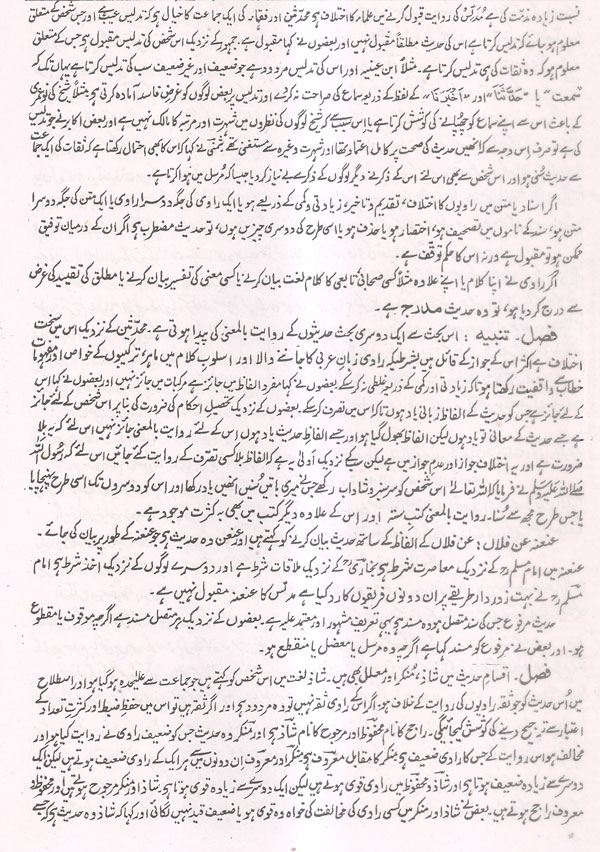 نسبت زیادہ مذمت کی ہے مُدلِّس کی روایت قبول کرنے میں علماء کا اختلاف ہے محدثین اور فقہاء کی ایک جماعت کا خیال ہے کہ تدلیس عیب ہے اور جس شخص کے متعلق
معلوم ہو جائے کہ تدلیس کرتا ہے اس کی حدیث مطلقاً مقبول نہیں اور بعضوں نے کہا مقبول ہے۔ جمہور کے نزدیک اس شخص کی تدلیس مقبول ہے جس کے متعلق
معلوم ہو کہ وہ ثقات کی ہی تدلیس کرتا ہے۔ مثلاً ابن عیینہ اور اس کی تدلیس مردود ہے جو ضعیف اور غیر ضعیف سب کی تدلیس کرتا ہے یہاں تک کہ
"سمعت" یا "حدثنا" اور "اخبرنا" کے لفظ کے ذریعہ سماع کی صراحت نہ کردے اور تدلیس پر بعض لوگوں کو غرض فاسد آمادہ کرتی ہے مثلاً شیخ کی نوعمری
کے باعث اس سے اپنے سماع کو چھپانے کی کوشش کرتا ہے یا اس سبب سے کہ شیخ لوگوں کی نظروں میں شہرت اور مرتبہ کا مالک نہیں ہے اور بعض اکابر نے جو تدلیس
کی ہے تو صرف اس وجہ سے کہ انھیں حدیث کی صحت پر کامل اعتماد تھا اور شہرت وغیرہ سے مستغنی تھے شمنی نے کہا اس کا بھی احتمال رکھتا ہے کہ ثقات کی ایک جماعت
سے حدیث سُنی ہو اور اس شخص سے بھی اس لئے اس کے ذکر نے دیگر لوگوں کے ذکر سے بے نیاز کر دیا جیسا کہ مُرسل میں ہوا کرتا ہے۔
اگر اسناد یا متن میں راویوں کا اختلاف، تقدیم و تاخیر، زیادتی و کمی کے ذریعے ہو یا ایک راوی کی جگہ دوسرا راوی یا ایک متن کی جگہ دوسرا
متن ہو، سند کے ناموں میں تصحیف ہو، اختصار ہو یا حذف ہو یا اسی طرح کی دوسری چیزیں ہوں، تو حدیث مضطرب ہے اگر ان کے درمیان توفیق
ممکن ہو تو مقبول ہے ورنہ اس کا حکم توقف ہے۔
اگر راوی نے اپنا کلام یا اپنے علاوہ مثلاً کسی صحابی یا تابعی کا کلام لغت بیان کرنے یا کسی معنی کی تفسیر بیان کرنے یا مطلق کی تقیید کی غرض
سے درج کر دیا ہو، تو وہ حدیث مدرج ہے۔
فصل۔ تنبیہ : اس بحث سے ایک دوسری بحث حدیثوں کے روایت بالمعنی کی پیدا ہوتی ہے۔ محدثین کے نزدیک اس میں سخت
اختلاف ہے اکثر اس کے جواز کے قائل ہیں بشرطیکہ راوی زبان عربی کا جاننے والا اور اسلوب کلام میں ماہر، ترکیبوں کے خواص اور مفہومات
خطاب سے واقفیت رکھتا ہو تاکہ زیادتی اور کمی کے ذریعہ غلطی نہ کر سکے بعضوں نے کہا مفرد الفاظ میں جائز ہے مرکبات میں جائز نہیں اور بعضوں نے کہا اس
کے لئے جائز ہے جس کو حدیث کے الفاظ زبانی یاد ہوں تاکہ اس میں تصرف کر سکے۔ بعضوں کے نزدیک تحصیل احکام کی ضرورت کی بنا پر اس شخص کے لئے جائز
ہے جسے حدیث کے معانی تو یاد ہوں لیکن الفاظ بھول گیا ہو اور جسے الفاظ حدیث یاد ہوں اس کے لئے روایت بالمعنی جائز نہیں اس لئے کہ یہ بلا
ضرورت ہے اور یہ اختلاف جواز اور عدم جواز میں ہے لیکن سب کے نزدیک اَولی یہ ہے کہ الفاظ بلا کسی تصرف کے روایت کئے جائیں اس لئے کہ رسول اللہ
صلے اللہ علیہ وسلم نے فرمایا کہ اللہ تعالےٰ اس شخص کو سرسبز و شاداب رکھے جس نے میری باتیں سنیں انھیں یاد رکھا اور اس کو دوسروں تک اسی طرح پہنچایا
یا جس طرح مجھ سے سُنا۔ روایت بالمعنی کتب ستہ اور اس کے علاوہ دیگر کتب میں بھی بہ کثرت موجود ہے۔
عنعنہ عن فلاں : عن فلاں کے الفاظ کے ساتھ حدیث بیان کرنے کو کہتے ہیں اور معنعن وہ حدیث ہے جو عنعنہ کے طور پر بیان کی جائے۔
عنعنہ میں امام مسلمؒ کے نزدیک معاصرت شرط ہے بخاریؒ کے نزدیک ملاقات شرط ہے اور دوسرے لوگوں کے نزدیک اخذ شرط ہے امام
مسلمؒ نے بہت زور دار طریقے پر ان دونوں فریقوں کا رد کیا ہے مدلس کا عنعنہ مقبول نہیں ہے۔
حدیث مرفوع جس کی سند متصل ہو وہ مسند ہے یہی تعریف مشہور اور معتمد علیہ ہے۔ بعضوں کے نزدیک ہر متصل مسند ہے اگرچہ موقوف یا مقطوع
ہو۔ اور بعض نے مرفوع کو مسند کہا ہے اگرچہ وہ مرسل یا معضل یا منقطع ہو۔
فصل۔ اقسام حدیث میں شاذ، مُنکر اور معلل بھی ہیں۔ شاذ لغت میں اس شخص کو کہتے ہیں جو جماعت سے علیحدہ ہو گیا ہو اور اصطلاح
میں اُس حدیث کو جو ثقہ راویوں کی روایت کے خلاف ہو، اگر اس کے راوی ثقہ نہیں تو وہ مردود ہے اور اگر ثقہ ہیں تو اس میں حفظ و ضبط اور کثرت تعداد کے
اعتبار سے ترجیح دینے کی کوشش کی جائے گی۔ راجح کا نام محفوظ اور مرجوح کا نام شاذ ہے اور مُنکر وہ حدیث جس کو ضعیف راوی نے روایت کیا ہو اور
مخالف ہو اس روایت کے جس کا راوی ضعیف ہے منکر کا مقابل معروف ہے منکر اور معروف ان دونوں میں سے ہر ایک کے راوی ضعیف ہوتے ہیں لیکن ایک
دوسرے سے زیادہ ضعیف ہوتا ہے اور شاذ و محفوظ میں راوی قوی ہوتے ہیں لیکن ایک دوسرے سے زیادہ قوی ہوتا ہے شاذ اور منکر مرجوح ہوتے ہیں اور محفوظ و
معروف راجح ہوتے ہیں۔ بعض نے شاذ اور منکر میں کسی راوی کی مخالفت کی خواہ وہ قوی ہو یا ضعیف قید نہیں لگائی اور کہا کہ شاذ وہ حدیث ہے کہ جسے